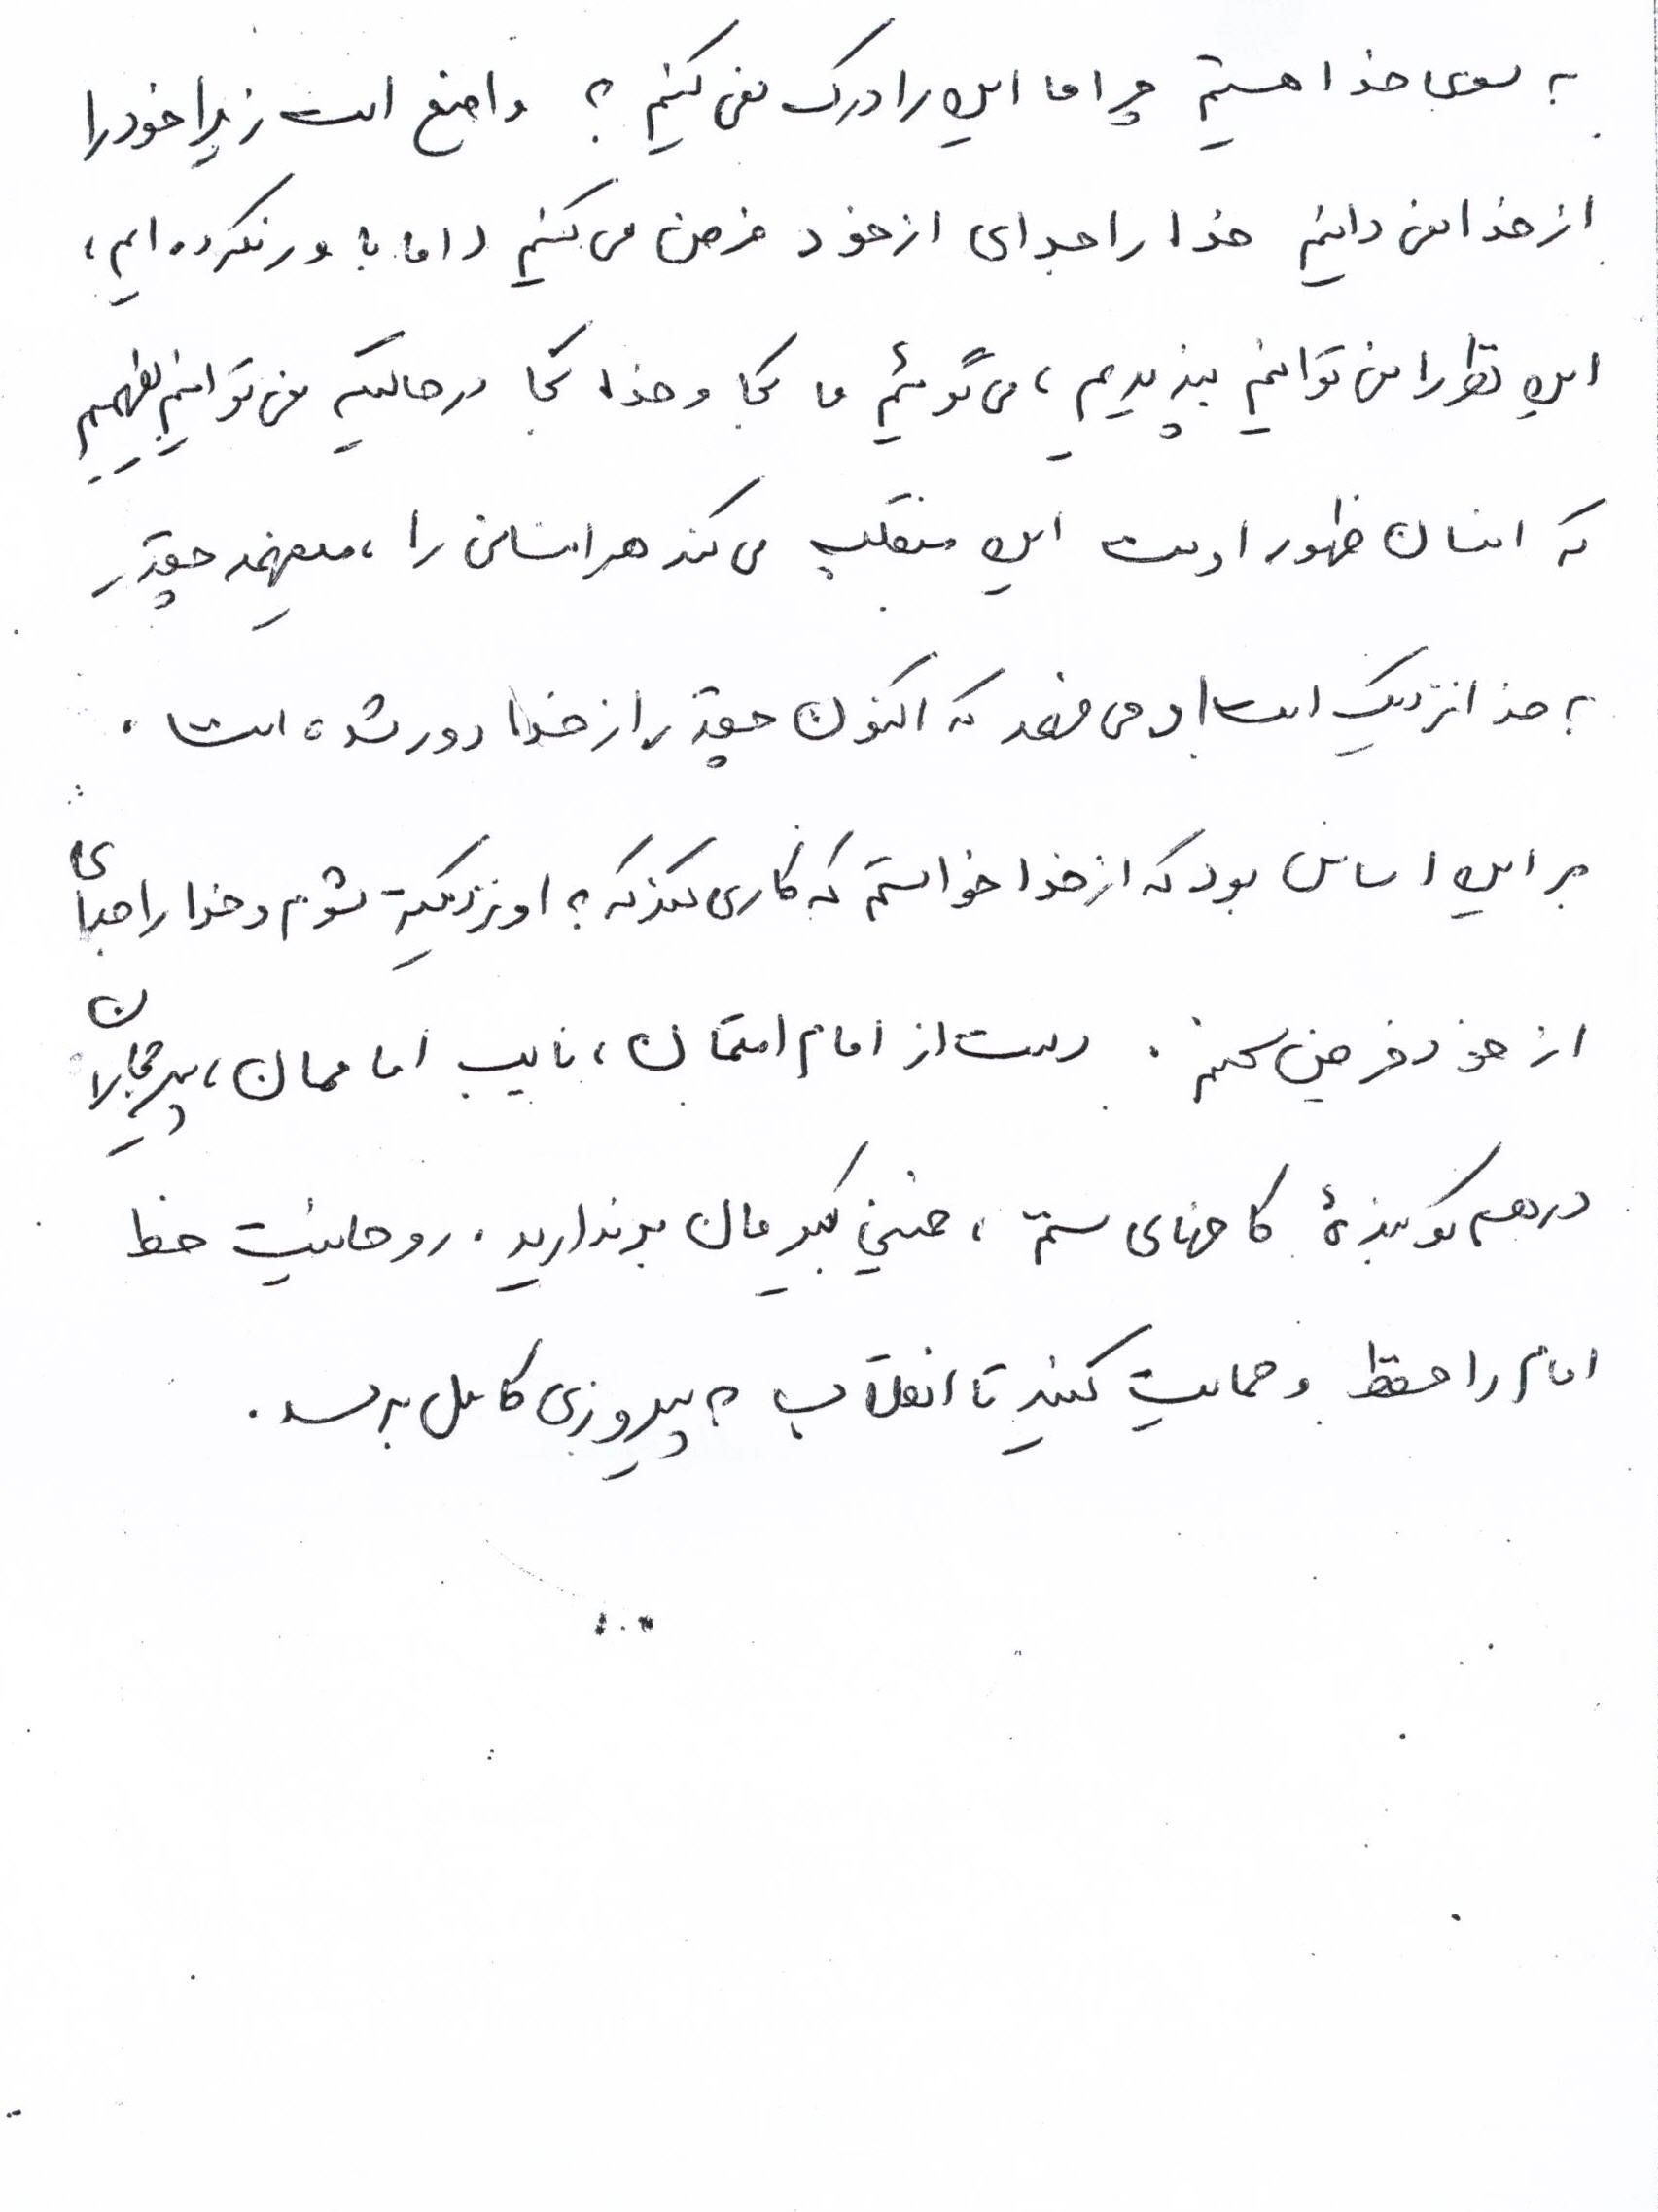 به سوی خدا هستیم چرا ما این را درک نمی کنیم ؟ واضح است زیرا خود را
از خدا نمی دانیم خدا را جدای از خود فرض می کنیم و اما باور نکرده ایم ،
این را نمی توانیم بپذیریم ، می گوئیم ما کجا و خدا کجا درحالیکه نمی توانیم بفهمیم
که انسان ظهور اوست این منقلب می کند هر انسانی را ، میفهمد چقدر
به خدا نزدیک است و می فهمد که اکنون چقدر از خدا دور شده است .
بر این اساس بود که از خدا خواستم که کاری کند که به او نزدیکتر شوم و خدا را جدای
از خود فرض نکنم . دست از امام امتمان ، نایب امام مان ، پیر جماران
در هم کوبندۀ کاخهای ستم ، خمینی کبیرمان برندارید . روحانیت خط
امام را حفظ و حمایت کنید تا انقلاب به پیروزی کامل برسد .
...